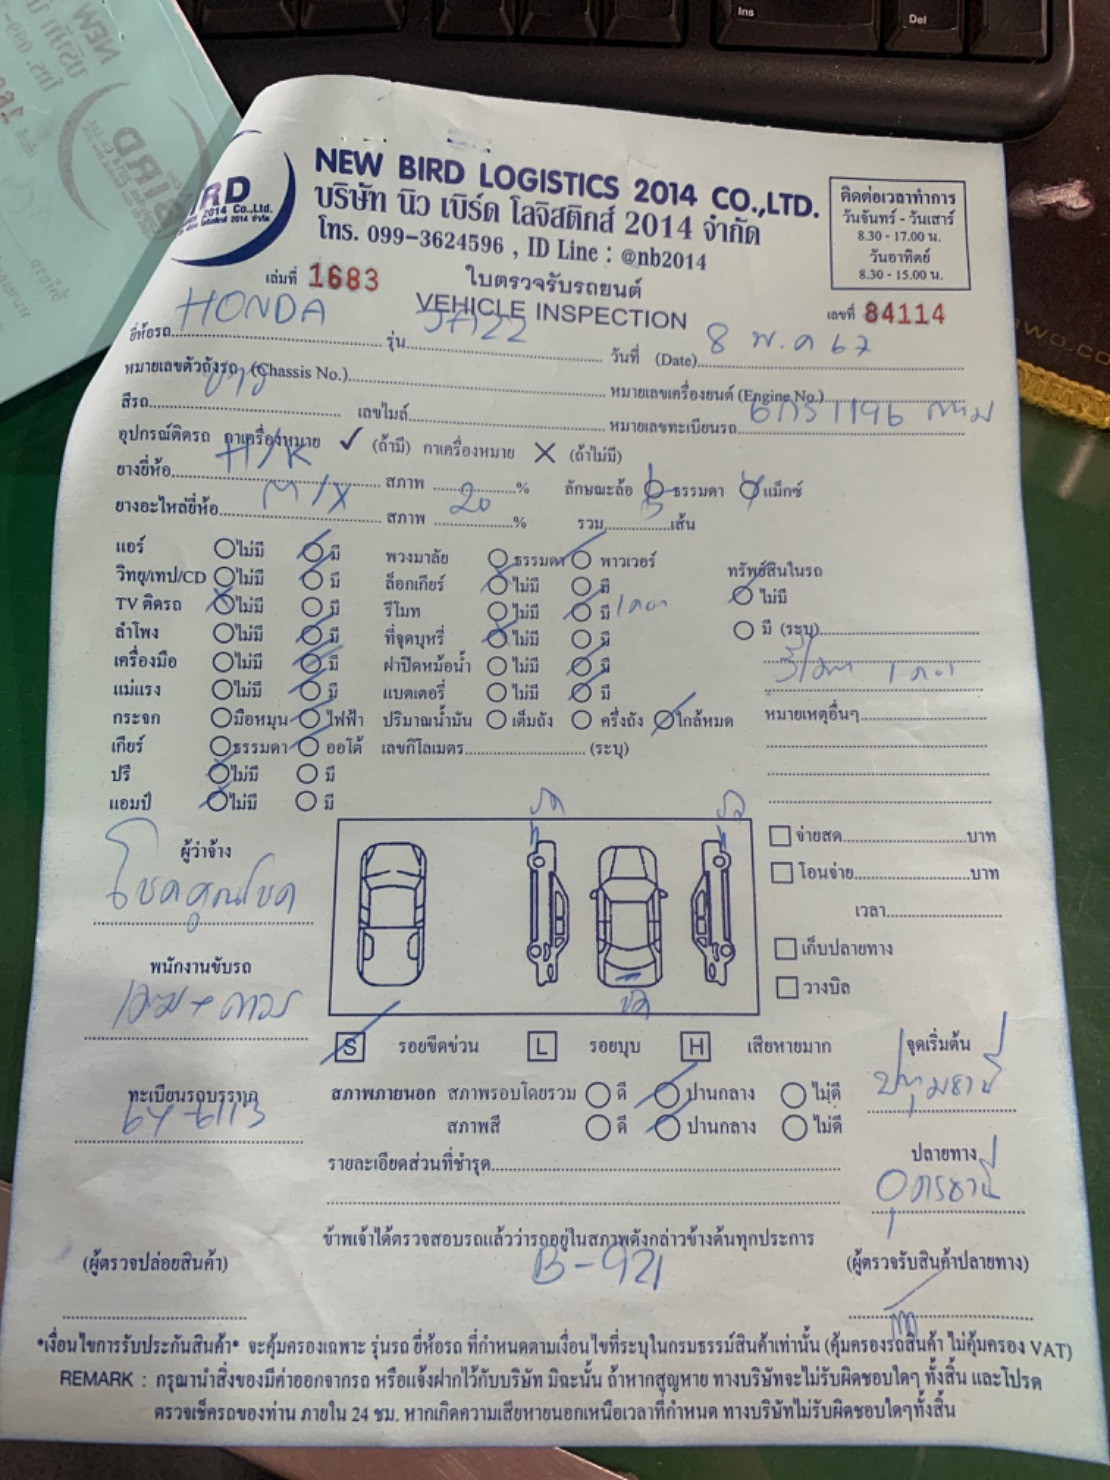 Ins
Del
NEW BIRD LOGISTICS 2014 CO.,LTD.
บริษัท นิว เบิร์ด โลจิสติกส์ 2014 จำกัด
โทร. 099-3624596 , ID Line : @nb2014
ติดต่อเวลาทำการ
วันจันทร์ - วันเสาร์
8.30 - 17.00 น.
วันอาทิตย์
8.30 - 15.00 น.
เล่มที่ 1683 ใบตรวจรับรถยนต์
VEHICLE INSPECTION เลขที่ 84114
ยี่ห้อรถ HONDA รุ่น วันที่ (Date) 8 พ.ค 67
หมายเลขตัวถังรถ (Chassis No.) หมายเลขเครื่องยนต์ (Engine No.)
สีรถ ขาว เลขไมล์ หมายเลขทะเบียนรถ 6กร1196 กทม
อุปกรณ์ติดรถ กาเครื่องหมาย ✓ (ถ้ามี) กาเครื่องหมาย X (ถ้าไม่มี)
ยางยี่ห้อ สภาพ % ลักษณะล้อ ธรรมดา แม็กซ์
ยางอะไหล่ยี่ห้อ MIX สภาพ 20 % รวม เส้น
แอร์ ไม่มี มี พวงมาลัย ธรรมดา พาวเวอร์
วิทยุ/เทป/CD ไม่มี มี ล็อกเกียร์ ไม่มี มี ทรัพย์สินในรถ
TV ติดรถ ไม่มี มี รีโมท ไม่มี มี 1 ดอก ไม่มี
ลำโพง ไม่มี มี ที่จุดบุหรี่ ไม่มี มี มี (ระบุ)
เครื่องมือ ไม่มี มี ฝาปิดหม้อน้ำ ไม่มี มี รีโมท 1 ดอก
แม่แรง ไม่มี มี แบตเตอรี่ ไม่มี มี
กระจก มือหมุน ไฟฟ้า ปริมาณน้ำมัน เต็มถัง ครึ่งถัง ใกล้หมด หมายเหตุอื่นๆ
เกียร์ ธรรมดา ออโต้ เลขกิโลเมตร (ระบุ)
ปรี ไม่มี มี
แอมป์ ไม่มี มี
ผู้ว่าจ้าง
โชคคูณโชค
พนักงานขับรถ
ทะเบียนรถบรรทุก
67-6113
จ่ายสด บาท
โอนจ่าย บาท
เวลา
เก็บปลายทาง
วางบิล
S รอยขีดข่วน L รอยบุบ H เสียหายมาก
สภาพภายนอก สภาพรอบโดยรวม ดี ปานกลาง ไม่ดี
สภาพสี ดี ปานกลาง ไม่ดี
รายละเอียดส่วนที่ชำรุด
จุดเริ่มต้น
ปทุมธานี
ปลายทาง
อุดรธานี
ข้าพเจ้าได้ตรวจสอบรถแล้วว่ารถอยู่ในสภาพดังกล่าวข้างต้นทุกประการ
B-921
(ผู้ตรวจปล่อยสินค้า) (ผู้ตรวจรับสินค้าปลายทาง)
*เงื่อนไขการรับประกันสินค้า* จะคุ้มครองเฉพาะ รุ่นรถ ยี่ห้อรถ ที่กำหนดตามเงื่อนไขที่ระบุในกรมธรรม์สินค้าเท่านั้น (คุ้มครองรถสินค้า ไม่คุ้มครอง VAT)
REMARK : กรุณานำสิ่งของมีค่าออกจากรถ หรือแจ้งฝากไว้กับบริษัท มิฉะนั้น ถ้าหากสูญหาย ทางบริษัทจะไม่รับผิดชอบใดๆ ทั้งสิ้น และโปรด
ตรวจเช็ครถของท่าน ภายใน 24 ชม. หากเกิดความเสียหายนอกเหนือเวลาที่กำหนด ทางบริษัทไม่รับผิดชอบใดๆทั้งสิ้น